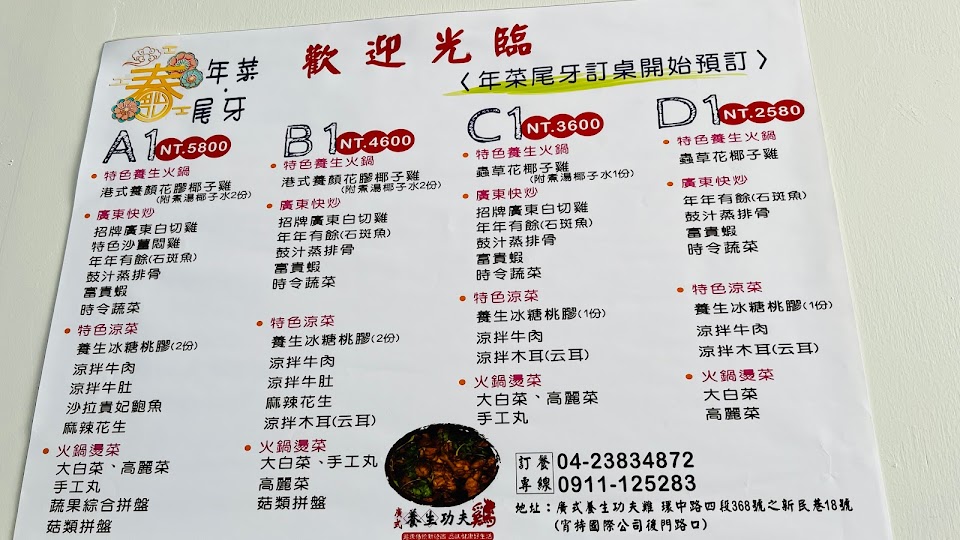 歡迎光臨
春
年菜
·
尾牙
〈年菜尾牙訂桌開始預訂〉
A1 NT.5800
• 特色養生火鍋
港式養顏花膠椰子雞
(附煮湯椰子水2份)
• 廣東快炒
招牌廣東白切雞
特色沙薑悶雞
年年有餘(石斑魚)
鼓汁蒸排骨
富貴蝦
時令蔬菜
• 特色涼菜
養生冰糖桃膠(2份)
涼拌牛肉
涼拌牛肚
沙拉貴妃鮑魚
麻辣花生
• 火鍋燙菜
大白菜、高麗菜
手工丸
蔬果綜合拼盤
菇類拼盤
B1 NT.4600
• 特色養生火鍋
港式養顏花膠椰子雞
(附煮湯椰子水2份)
• 廣東快炒
招牌廣東白切雞
年年有餘(石斑魚)
鼓汁蒸排骨
富貴蝦
時令蔬菜
• 特色涼菜
養生冰糖桃膠(2份)
涼拌牛肉
涼拌牛肚
麻辣花生
涼拌木耳(云耳)
• 火鍋燙菜
大白菜、手工丸
高麗菜
菇類拼盤
C1 NT.3600
• 特色養生火鍋
蟲草花椰子雞
(附煮湯椰子水1份)
• 廣東快炒
招牌廣東白切雞
年年有餘(石斑魚)
鼓汁蒸排骨
富貴蝦
時令蔬菜
• 特色涼菜
養生冰糖桃膠(1份)
涼拌牛肉
涼拌木耳(云耳)
• 火鍋燙菜
大白菜、高麗菜
手工丸
D1 NT.2580
• 特色養生火鍋
蟲草花椰子雞
• 廣東快炒
年年有餘(石斑魚)
鼓汁蒸排骨
時令蔬菜
• 特色涼菜
養生冰糖桃膠(1份)
涼拌牛肉
涼拌木耳(云耳)
• 火鍋燙菜
大白菜
高麗菜
廣式養生功夫雞
訂餐專線
04-23834872
0911-125283
地址：廣式養生功夫雞 環中路四段368號之新民巷18號
(宵持國際公司後門路口)